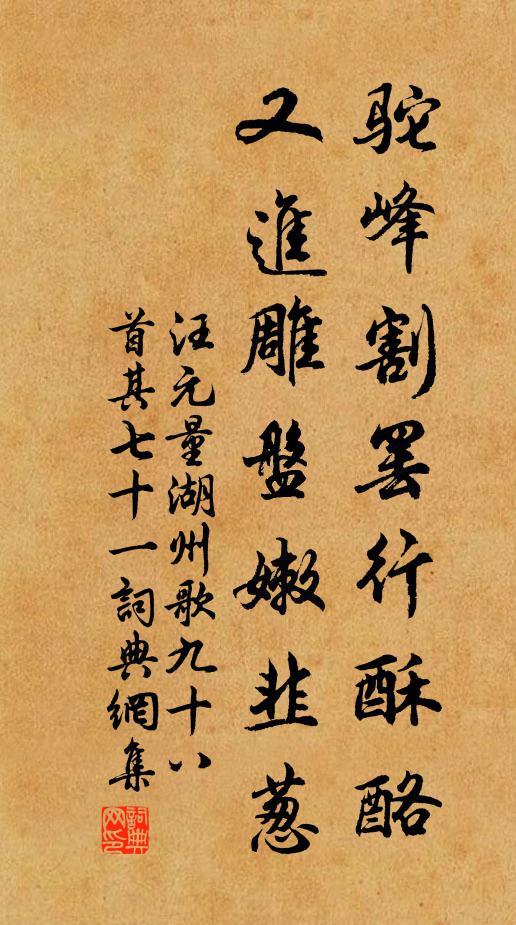 駝峰割罢行酥酪
又進雕盤嫩韭葱
汪元量湖州歌九十八
首其七十一詞典網集
詞典网印